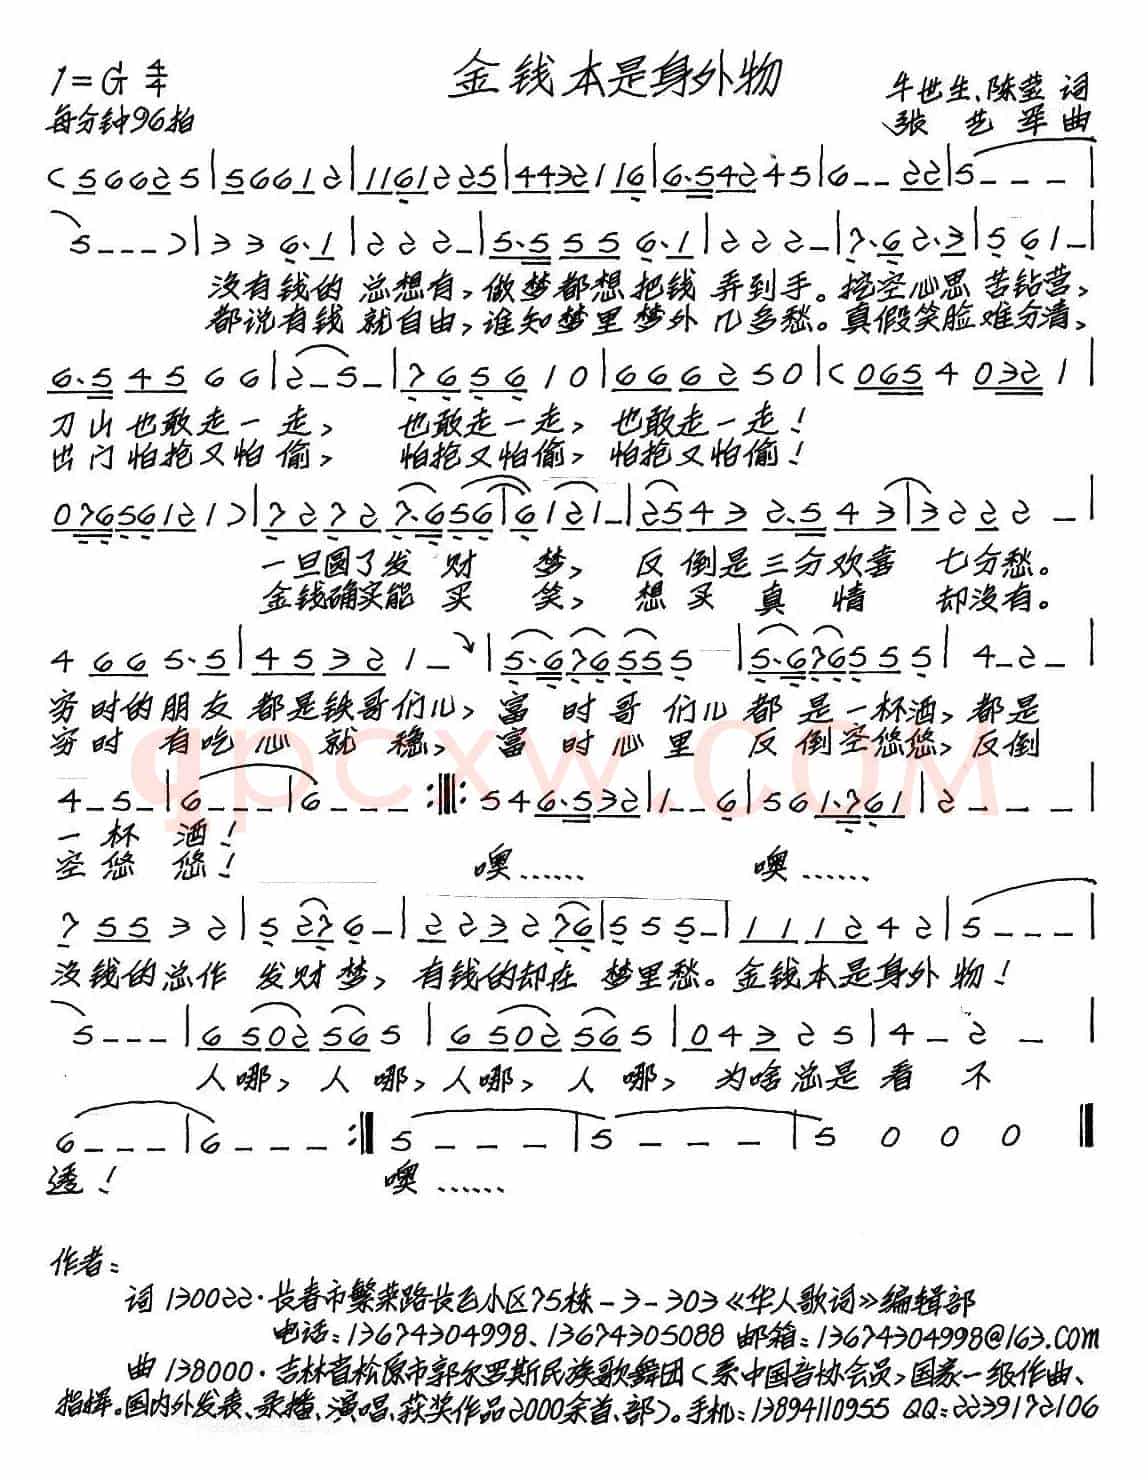 金钱本是身外物
1=G 4/4
每分钟96拍
牛世生、陈莹 词
张艺军曲
(56625|56612|1161225|4432116|6·54245|6--22|5---|
5---)|336·1|222-|5·5556·1|222-|7·62·3|561-|
没有钱的总想有,做梦都想把钱弄到手。挖空心思苦钻营,
都说有钱就自由,谁知梦里梦外几多愁。真假笑脸难分清,
6·54566|2-5-|765610|666250|(06540321|
刀山也敢走一走,也敢走一走,也敢走一走!
出门怕抢又怕偷,怕抢又怕偷,怕抢又怕偷!
07656121)|72727·656|6121-|25432·543|3222-|
一旦圆了发财梦,反倒是三分欢喜七分愁。
金钱确实能买笑,想买真情却没有。
4665·5|45321-|5·676555|5·676555|4-2-|
穷时的朋友都是铁哥们儿,富时哥们儿都是一杯酒,都是
穷时有吃心就稳,富时心里反倒空悠悠,反倒
qpcxw.com
4-5-|6---|6---:||:546·532|1--6|561·761|2---|
一杯酒!
空悠悠! 噢…… 噢……
75532|5276-|2223276|555-|111242|5---|
没钱的总作发财梦,有钱的却在梦里愁。金钱本是身外物!
5---|6502565|6502565|04325|4-2-|
人哪,人哪,人哪,人哪,为啥总是看不
6---|6---:||5---|5---|5000||
透! 噢……
作者:
词130022·长春市繁荣路长飞小区75栋-3-303《华人歌词》编辑部
电话:13674304998、13674305088 邮箱:13674304998@163.com
曲138000·吉林省松原市郭尔罗斯民族歌舞团(系中国音协会员,国家一级作曲、
指挥。国内外发表、录播、演唱、获奖作品2000余首、部)。手机:13894110955 QQ:2239172106